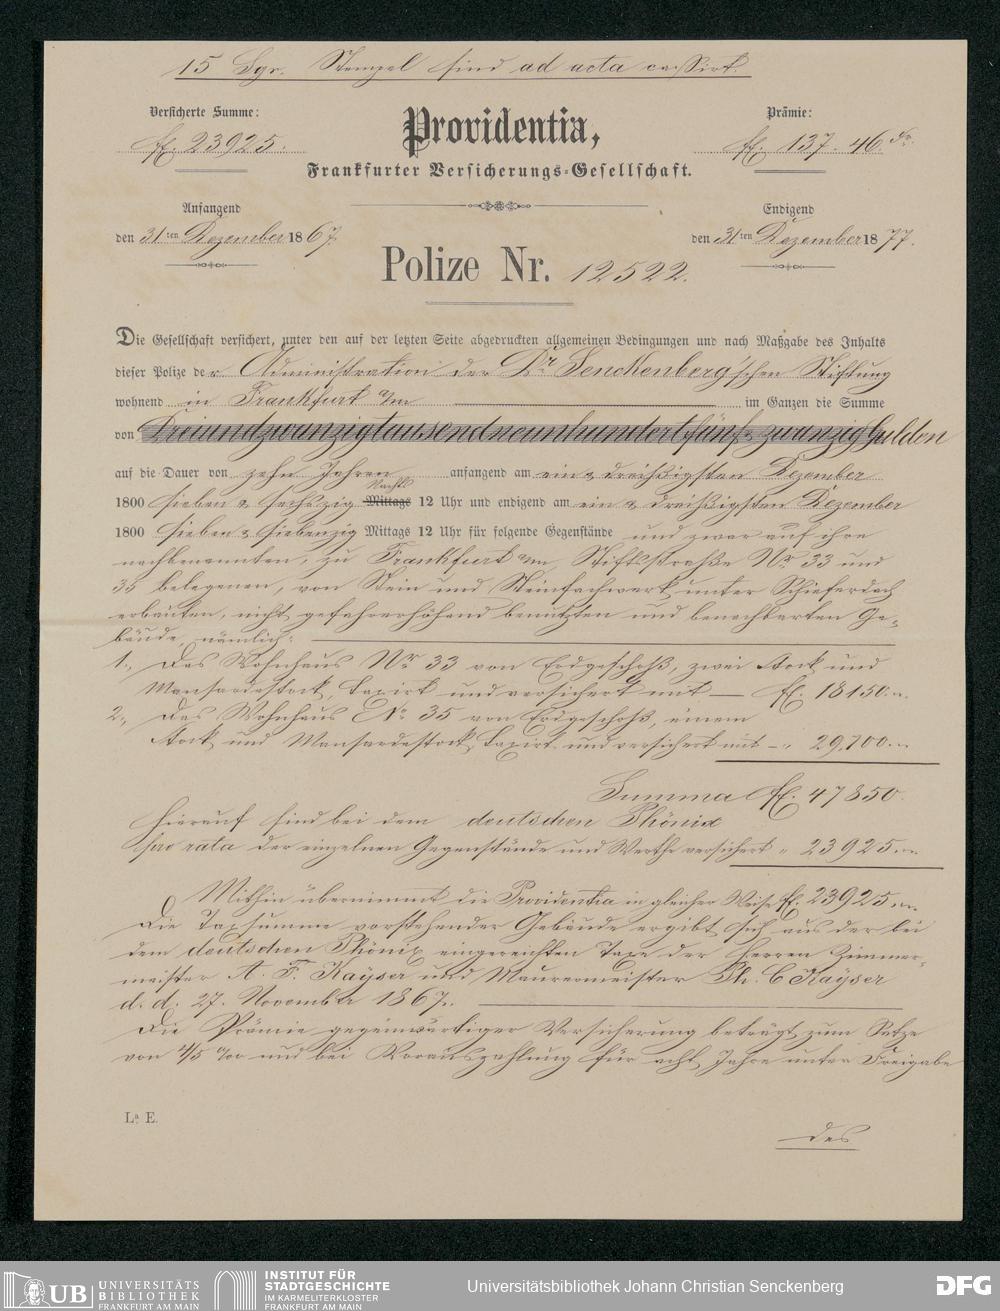 15 Sgr. Stempel sind ad acta cassirt.
Versicherte Summe:
fl. 23925.
Providentia,
Frankfurter Versicherungs-Gesellschaft.
Prämie:
fl. 137. 46
Anfangend
den 31ten Dezember 1867
Endigend
den 31ten Dezember 1877.
Polize Nr. 12522.
Die Gesellschaft versichert, unter den auf der letzten Seite abgedruckten allgemeinen Bedingungen und nach Maßgabe des Inhalts
dieser Polize der Administration der Dr. Senckenberg'schen Stiftung
wohnend in Frankfurt a/m im Ganzen die Summe
von Dreiundzwanzigtausendneunhundertfünf & zwanzig Gulden
auf die Dauer von zehn Jahren anfangend am ein & dreißigsten Dezember
Nachts
1800 sieben & sechszig Mittags 12 Uhr und endigend am ein & dreißigsten Dezember
1800 sieben & siebenzig Mittags 12 Uhr für folgende Gegenstände und zwar auf ihre
nachbenannten, zu Frankfurt a/m, Stiftsstraße Nr. 33 und
35 belegenen, von Stein und Steinfachwerk unter Schieferdach
erbauten, nicht gefahrerhöhend benutzten und benachbarten Ge-
bäude, nämlich:
1., Das Wohnhaus Nr. 33 von Erdgeschoß, zwei Stock und
Mansardestock, taxirt und versichert mit — fl. 18150.
2., Das Wohnhaus No. 35 von Erdgeschoß, einem
Stock und Mansardestock, taxirt und versichert mit — " 29,700.
Summa fl. 47850.
Hierauf sind bei dem deutschen Phönix
pro rata der einzelnen Gegenstände und Werthe versichert " 23925.
Mithin übernimmt die Providentia in gleicher Weise fl. 23925.
Die Taxsumme vorstehender Gebäude ergibt sich aus der bei
dem deutschen Phönix eingereichten Taxe der Herren Zimmer-
meister A. F. Kayser und Maurermeister Ph. C Kayser
d. d. 27. November 1867.
Die Prämie gegenwärtiger Versicherung beträgt zum Satze
von 4/5 0/00 und bei Vorauszahlung für acht Jahre unter Freigabe
La. E.
des
UB UNIVERSITÄTS
BIBLIOTHEK
FRANKFURT AM MAIN
INSTITUT FÜR
STADTGESCHICHTE
IM KARMELITERKLOSTER
FRANKFURT AM MAIN
Universitätsbibliothek Johann Christian Senckenberg
DFG